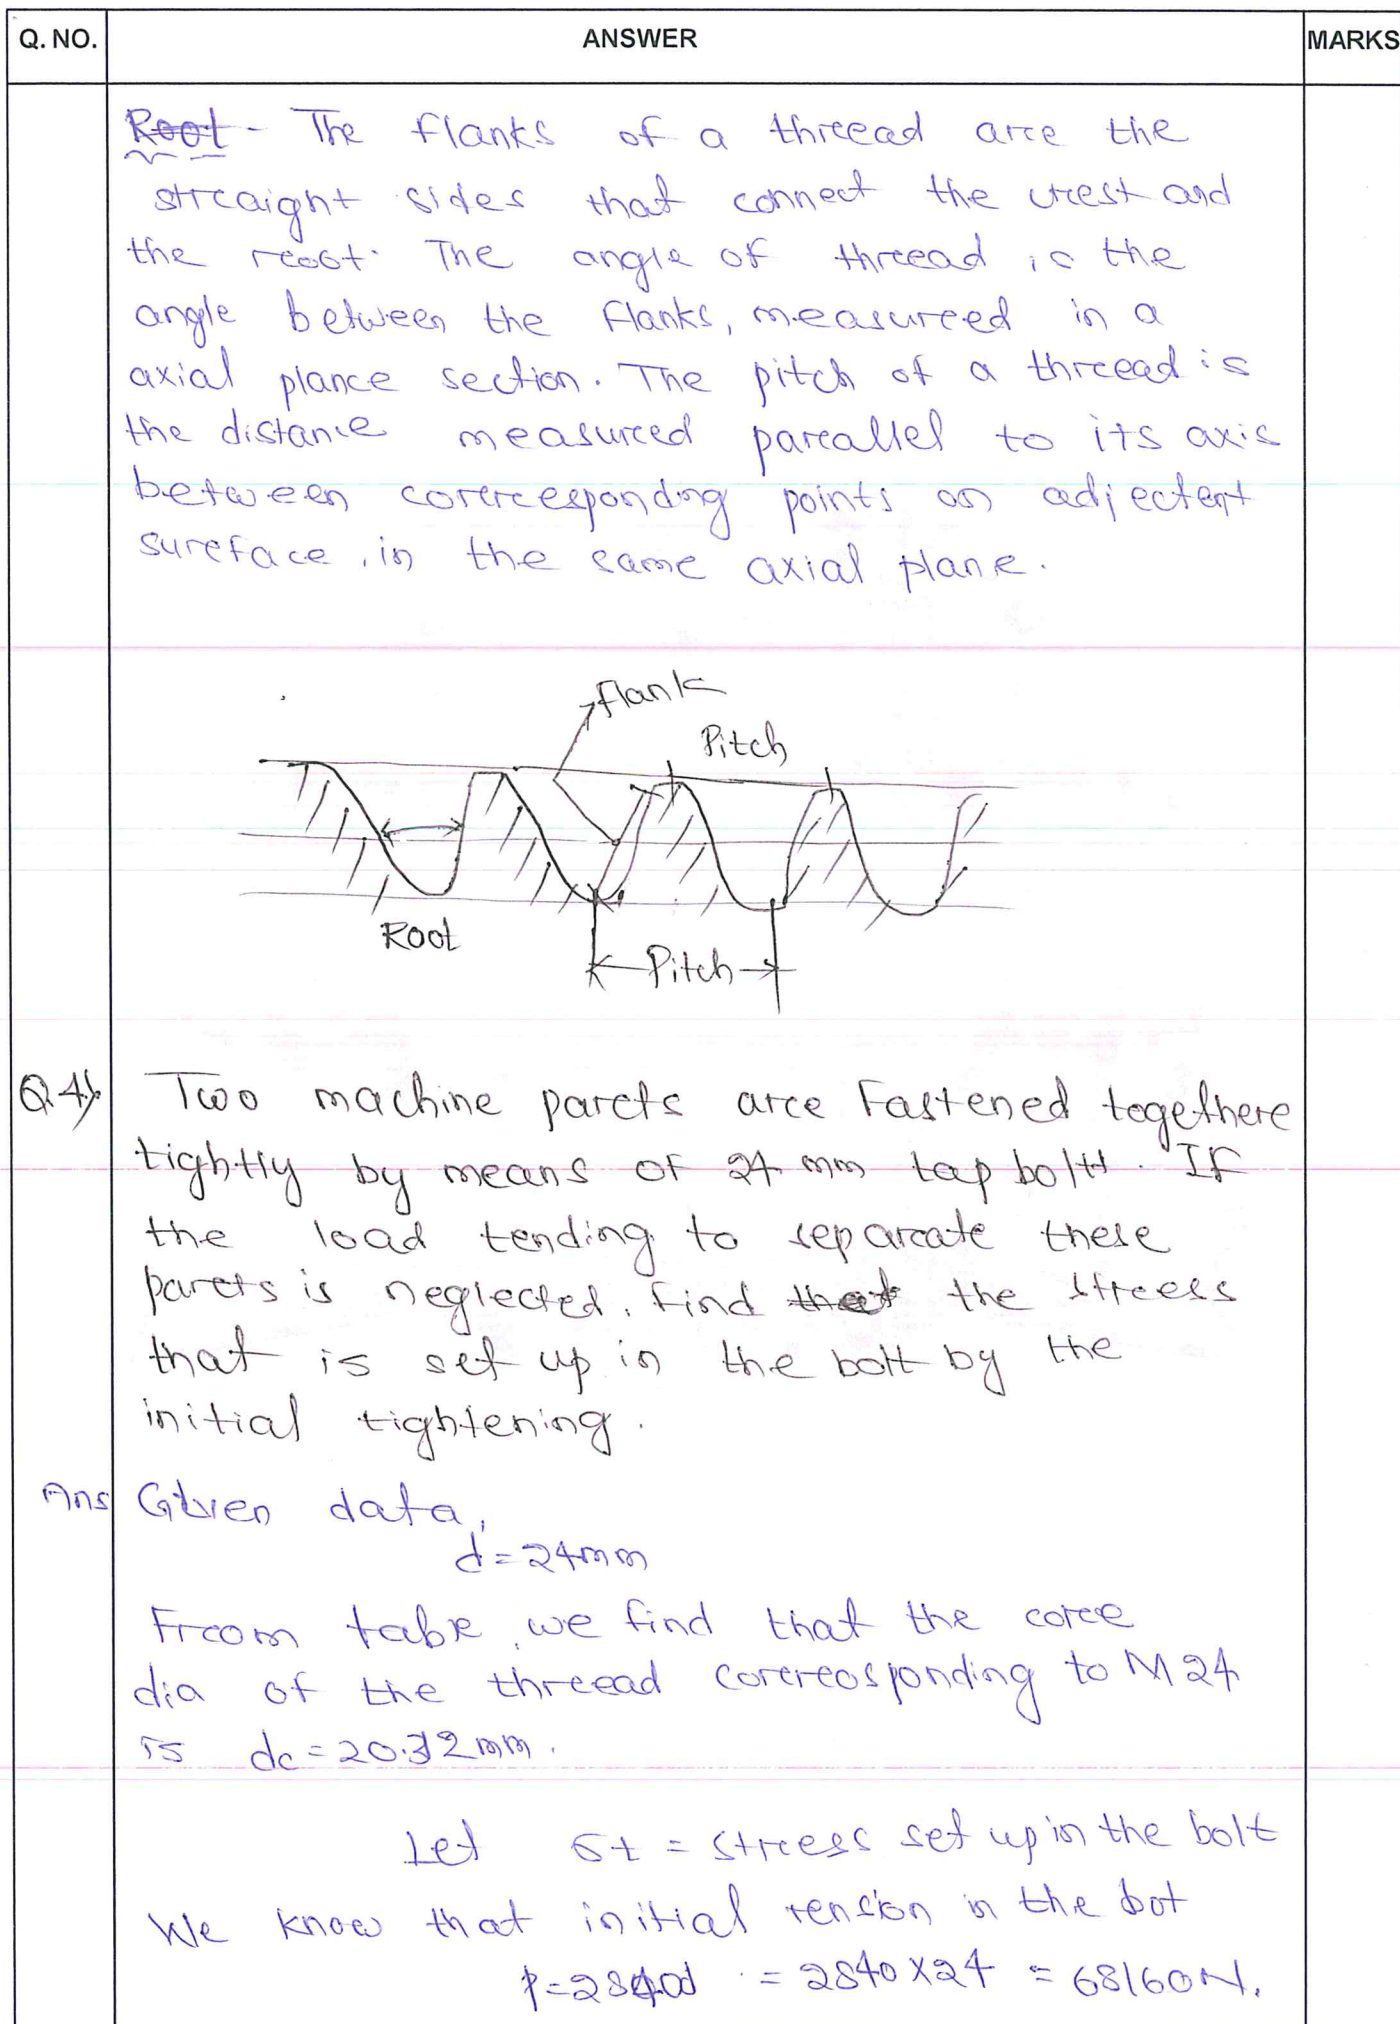 Q. NO. ANSWER MARKS
Root - The flanks of a threead arce the
strcaight sides that connect the crest and
the reoot. The angle of threead is the
angle between the flanks, measureed in a
axial plance section. The pitch of a threead is
the distance measurced parcallel to its axis
between corercesponding points on adjectent
sureface, in the same axial plane.
flank
Pitch
Root
Pitch
Q.4) Two machine parcts arce Fastened togethere
tightly by means of 24 mm tap bolt. If
the load tending to separcate these
parcts is neglected. find that the streess
that is set up in the bolt by the
initial tightening.
Ans Given data,
d = 24mm
Frcom table, we find that the corce
dia of the threead correreosponding to M24
is dc = 20.32 mm.
Let σt = strcess set up in the bolt
We know that initial tension in the bot
p = 2840d = 2840 X 24 = 68160N.